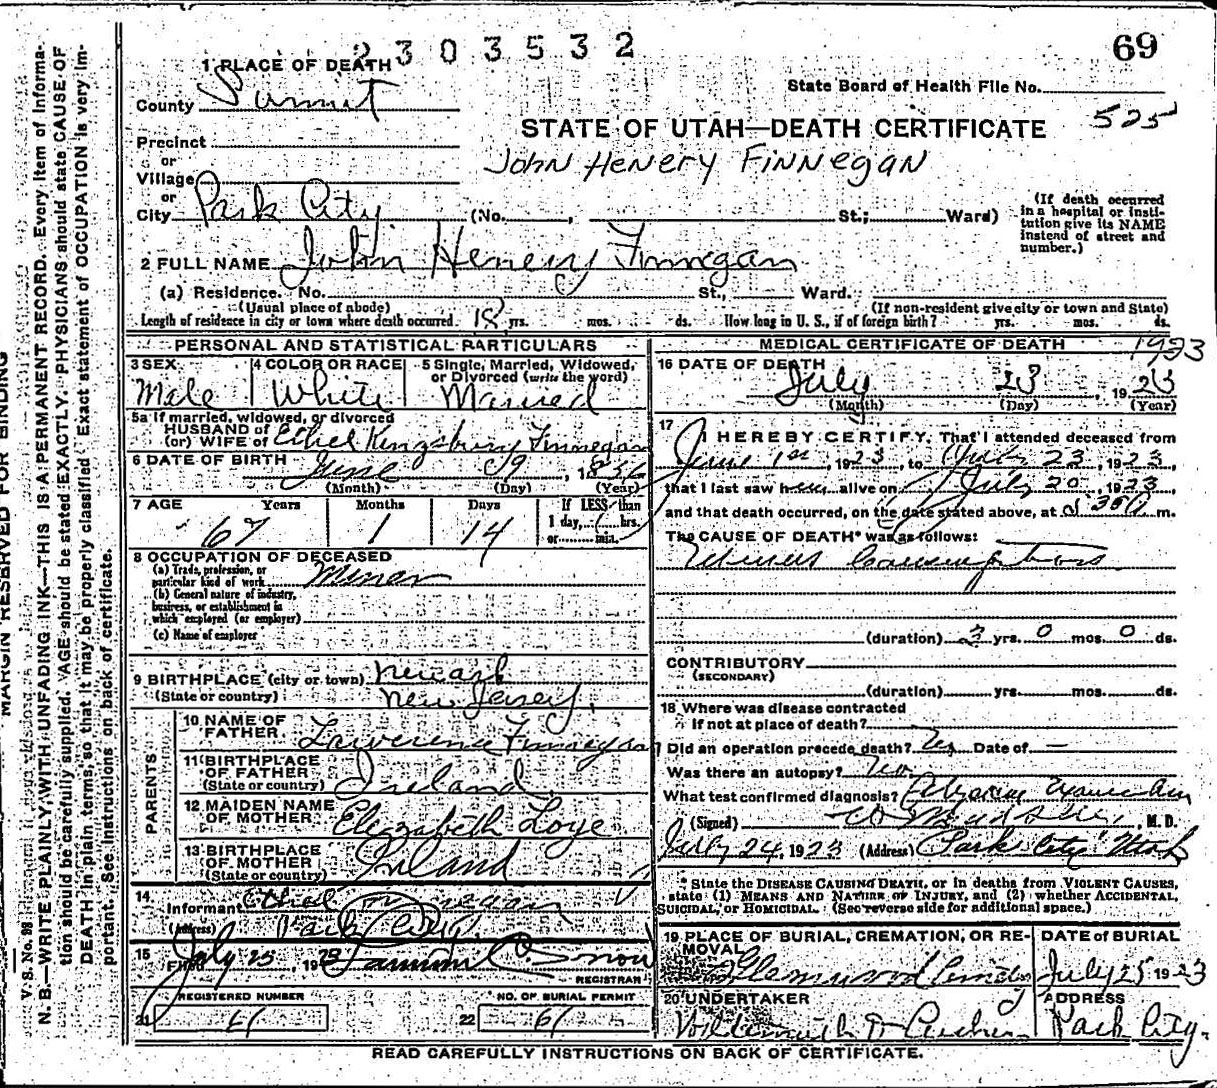 2303532
69
1 PLACE OF DEATH
State Board of Health File No.
County Summit
525
STATE OF UTAH—DEATH CERTIFICATE
Precinct
John Henery Finnegan
or
Village
or
City Park City (No. , St.; Ward)
(If death occurred in a hospital or institution give its NAME instead of street and number.)
2 FULL NAME John Henery Finnegan
(a) Residence. No. St., Ward.
(Usual place of abode) (If non-resident give city or town and State)
Length of residence in city or town where death occurred 18 yrs. mos. ds. How long in U. S., if of foreign birth? yrs. mos. ds.
PERSONAL AND STATISTICAL PARTICULARS
3 SEX 4 COLOR OR RACE 5 Single, Married, Widowed, or Divorced (write the word)
Male White Married
5a If married, widowed, or divorced
HUSBAND of
(or) WIFE of Ethel Kingsbury Finnegan
6 DATE OF BIRTH June 9, 1856
(Month) (Day) (Year)
7 AGE Years Months Days If LESS than
67 1 14 1 day, hrs.
or min.
8 OCCUPATION OF DECEASED
(a) Trade, profession, or
particular kind of work Miner
(b) General nature of industry,
business, or establishment in
which employed (or employer)
(c) Name of employer
9 BIRTHPLACE (city or town) Newark
(State or country) New Jersey.
PARENTS
10 NAME OF
FATHER Lawerence Finnegan
11 BIRTHPLACE
OF FATHER
(State or country) Ireland
12 MAIDEN NAME
OF MOTHER Elizabeth Loye
13 BIRTHPLACE
OF MOTHER
(State or country) Ireland
14
Informant Ethel Finnegan
(Address) Park City.
15
Filed July 25, 1923 Snow
REGISTRAR
REGISTERED NUMBER NO. OF BURIAL PERMIT
21 61 22 61
MEDICAL CERTIFICATE OF DEATH 1923
16 DATE OF DEATH
July 23, 1923
(Month) (Day) (Year)
17
I HEREBY CERTIFY, That I attended deceased from
June 1st, 1923, to July 23, 1923,
that I last saw him alive on July 20, 1923,
and that death occurred, on the date stated above, at m.
The CAUSE OF DEATH* was as follows:
Miners Consumption
(duration) 3 yrs. 0 mos. 0 ds.
CONTRIBUTORY
(SECONDARY)
(duration) yrs. mos. ds.
18 Where was disease contracted
if not at place of death?
Did an operation precede death? Date of —
Was there an autopsy? No
What test confirmed diagnosis?
(Signed) , M. D.
July 24, 1923 (Address) Park City Utah
* State the DISEASE CAUSING DEATH, or in deaths from VIOLENT CAUSES,
state (1) MEANS AND NATURE OF INJURY, and (2) whether ACCIDENTAL,
SUICIDAL, or HOMICIDAL. (See reverse side for additional space.)
19 PLACE OF BURIAL, CREMATION, OR REMOVAL DATE of BURIAL
Glennwood July 25 1923
20 UNDERTAKER ADDRESS
Park City.
READ CAREFULLY INSTRUCTIONS ON BACK OF CERTIFICATE.
MARGIN RESERVED FOR BINDING
V. S. No. 98
N. B.—WRITE PLAINLY, WITH UNFADING INK—THIS IS A PERMANENT RECORD. Every item of information should be carefully supplied. AGE should be stated EXACTLY. PHYSICIANS should state CAUSE OF DEATH in plain terms, so that it may be properly classified. Exact statement of OCCUPATION is very important. See instructions on back of certificate.